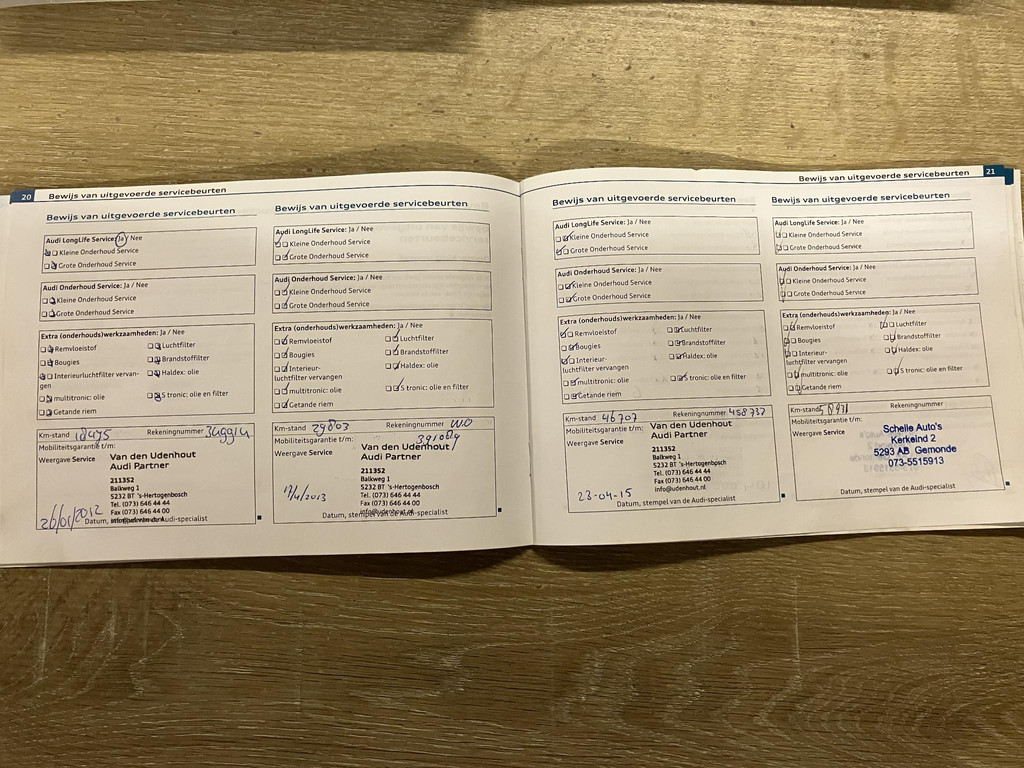 20 Bewijs van uitgevoerde servicebeurten
Bewijs van uitgevoerde servicebeurten
Audi LongLife Service: Ja / Nee
Kleine Onderhoud Service
Grote Onderhoud Service
Audi Onderhoud Service: Ja / Nee
Kleine Onderhoud Service
Grote Onderhoud Service
Extra (onderhouds)werkzaamheden: Ja / Nee
Remvloeistof Luchtfilter
Bougies Brandstoffilter
Interieurluchtfilter vervan- Haldex: olie
gen
multitronic: olie S tronic: olie en filter
Getande riem
Km-stand 18495 Rekeningnummer
Mobiliteitsgarantie t/m:
Weergave Service
Van den Udenhout
Audi Partner
211352
Balkweg 1
5232 BT 's-Hertogenbosch
Tel. (073) 646 44 44
Fax (073) 646 44 00
info@udenhout.nl
26/01/2012
Datum, stempel van de Audi-specialist
Bewijs van uitgevoerde servicebeurten
Audi LongLife Service: Ja / Nee
Kleine Onderhoud Service
Grote Onderhoud Service
Audi Onderhoud Service: Ja / Nee
Kleine Onderhoud Service
Grote Onderhoud Service
Extra (onderhouds)werkzaamheden: Ja / Nee
Remvloeistof Luchtfilter
Bougies Brandstoffilter
Interieur- Haldex: olie
luchtfilter vervangen
multitronic: olie S tronic: olie en filter
Getande riem
Km-stand 29803 Rekeningnummer WO
Mobiliteitsgarantie t/m:
Weergave Service
Van den Udenhout
Audi Partner
211352
Balkweg 1
5232 BT 's-Hertogenbosch
Tel. (073) 646 44 44
Fax (073) 646 44 00
info@udenhout.nl
17/4/2013
Datum, stempel van de Audi-specialist
Bewijs van uitgevoerde servicebeurten 21
Bewijs van uitgevoerde servicebeurten
Audi LongLife Service: Ja / Nee
Kleine Onderhoud Service
Grote Onderhoud Service
Audi Onderhoud Service: Ja / Nee
Kleine Onderhoud Service
Grote Onderhoud Service
Extra (onderhouds)werkzaamheden: Ja / Nee
Remvloeistof Luchtfilter
Bougies Brandstoffilter
Interieur- Haldex: olie
luchtfilter vervangen
multitronic: olie S tronic: olie en filter
Getande riem
Km-stand 46707 Rekeningnummer 458737
Mobiliteitsgarantie t/m:
Weergave Service
Van den Udenhout
Audi Partner
211352
Balkweg 1
5232 BT 's-Hertogenbosch
Tel. (073) 646 44 44
Fax (073) 646 44 00
info@udenhout.nl
23-04-15
Datum, stempel van de Audi-specialist
Bewijs van uitgevoerde servicebeurten
Audi LongLife Service: Ja / Nee
Kleine Onderhoud Service
Grote Onderhoud Service
Audi Onderhoud Service: Ja / Nee
Kleine Onderhoud Service
Grote Onderhoud Service
Extra (onderhouds)werkzaamheden: Ja / Nee
Remvloeistof Luchtfilter
Bougies Brandstoffilter
Interieur- Haldex: olie
luchtfilter vervangen
multitronic: olie S tronic: olie en filter
Getande riem
Km-stand 58931 Rekeningnummer
Mobiliteitsgarantie t/m:
Weergave Service
Schelle Auto's
Kerkeind 2
5293 AB Gemonde
073-5515913
Datum, stempel van de Audi-specialist